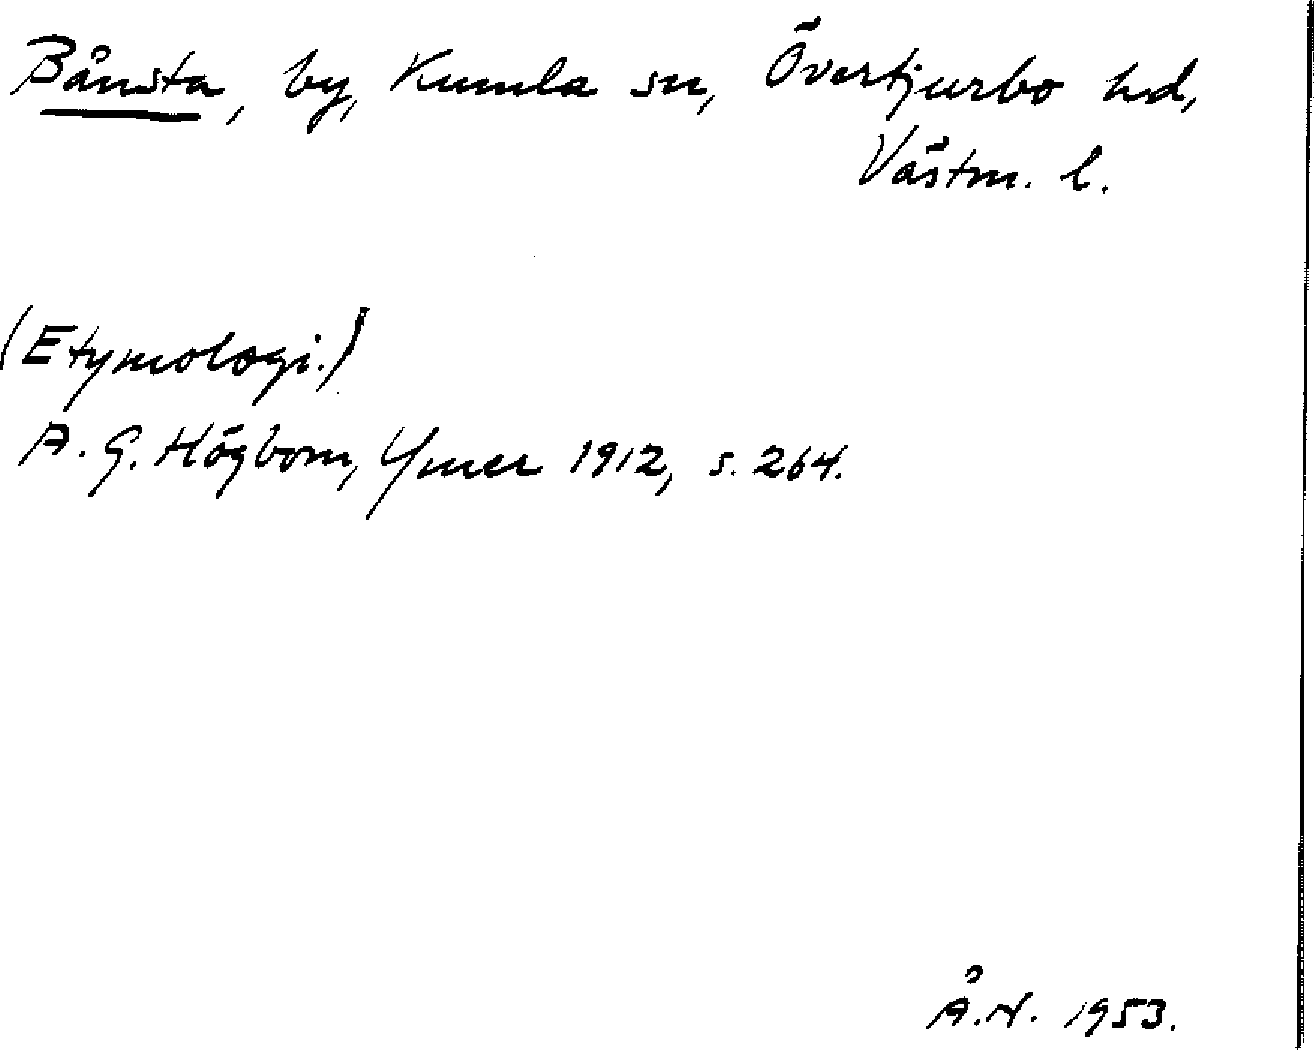 Bånsta, by, Kumla sn, Övertjurbo hd,
Västm. l.
(Etymologi.)
A. G. Högbom, Ymer 1912, s. 264.
Å.N. 1953.